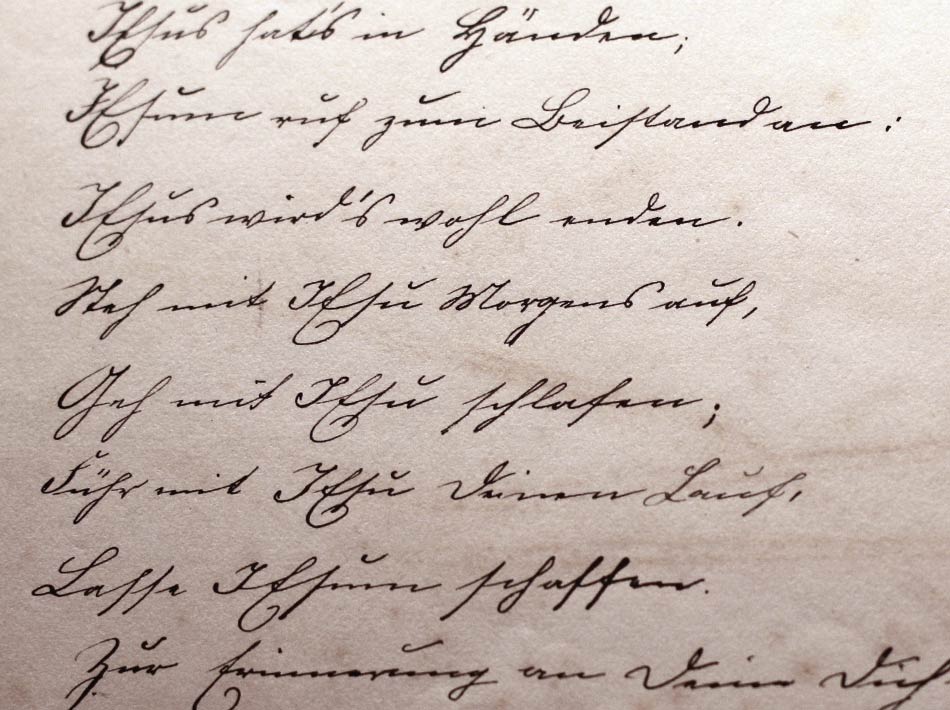 JEsus hat's in Händen;
JEsum ruf zum Beistand an:
JEsus wird's wohl enden.
Steh mit JEsu Morgens auf,
Geh mit JEsu schlafen;
Führ mit JEsu Deinen Lauf,
Lasse JEsum schaffen.
Zur Erinnerung an Deine Dich